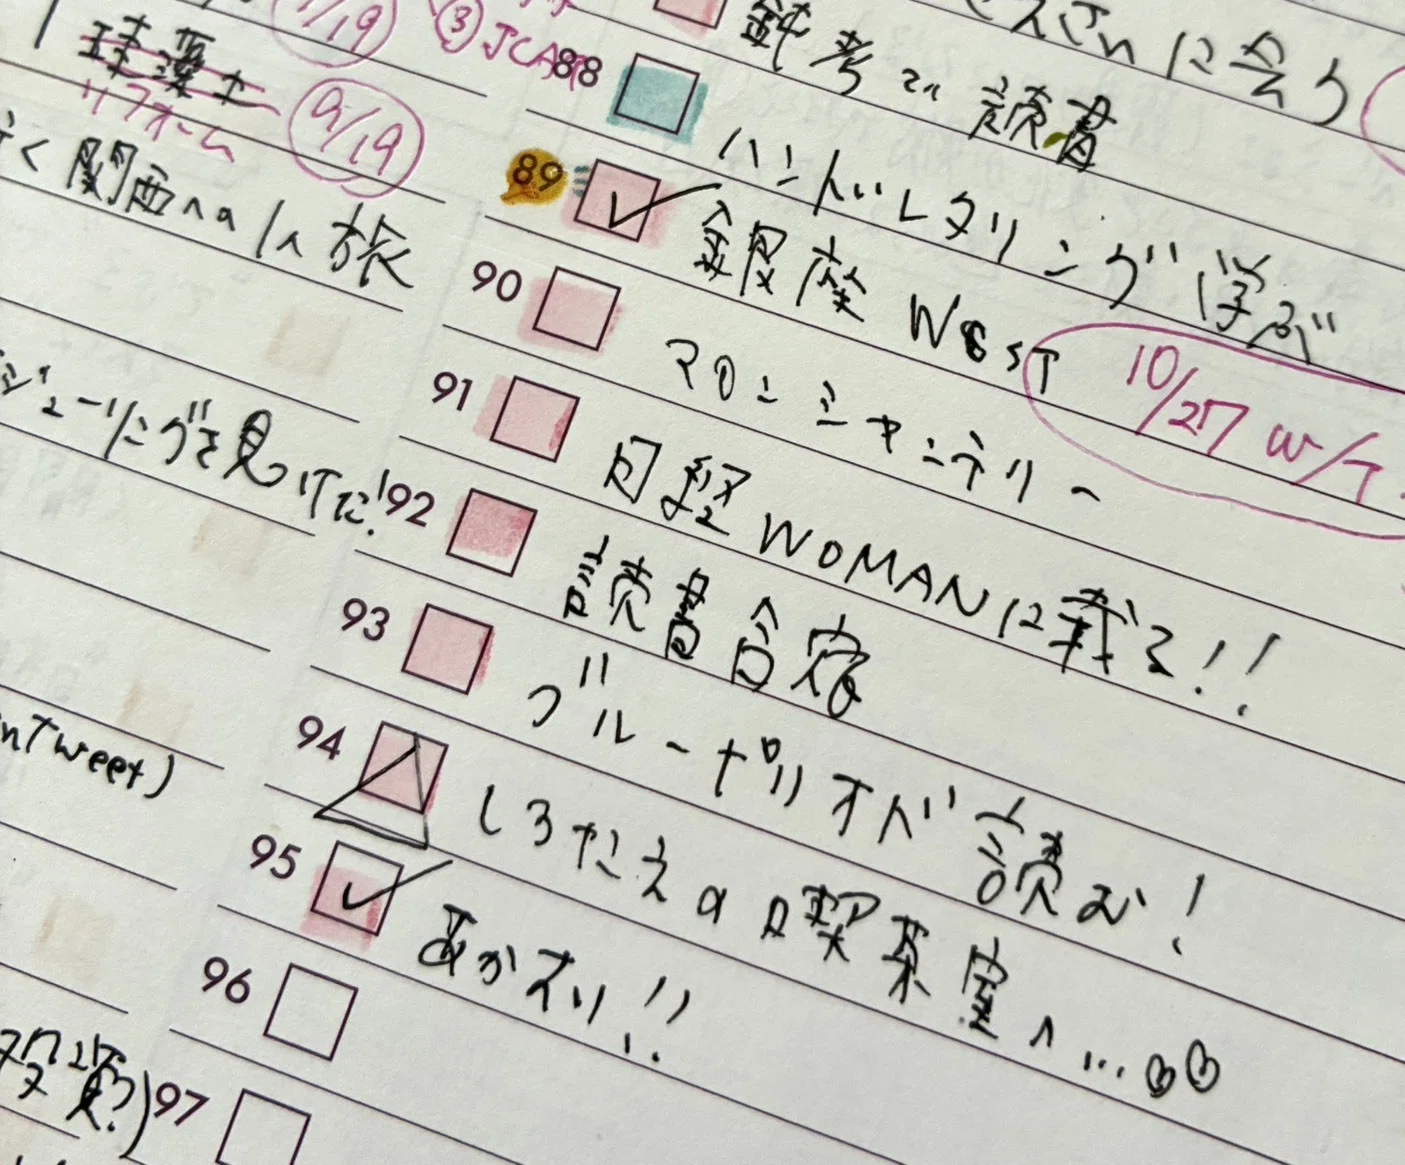 9/19
③ JCAT
さんに会う
鈍考で読書
リフォーム 9/19
関西への1人旅
88 ハンドレタリング学ぶ
89 銀座WEST 10/27 w/T
90 マロンシャンテリー
91 日経WOMANに載る!!
ジューリングを見つけた!
92 読書合宿
93 ブルーピリオド読む!
94 しろたえの喫茶室へ...♡♡
inTweet)
95 あかすり!!
96
97
投資?)